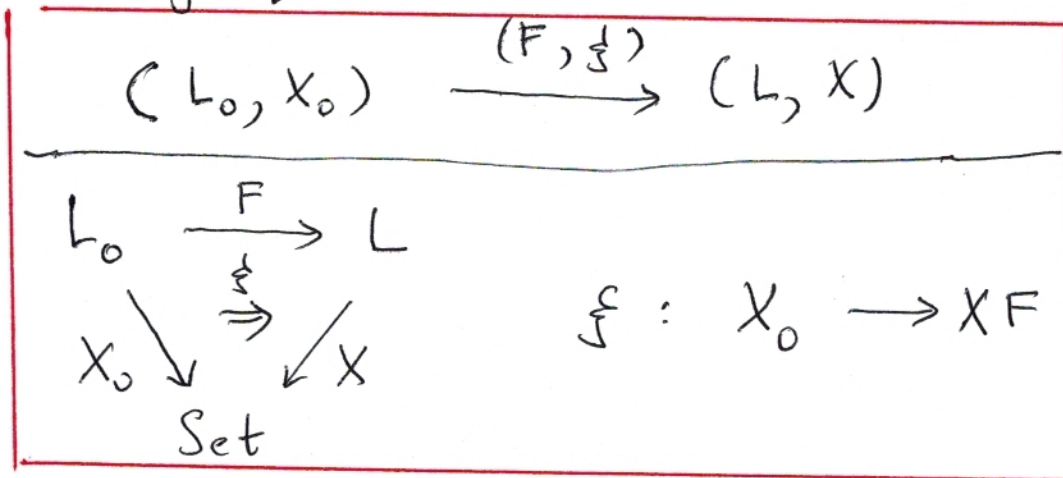 (L₀, X₀) (F, ξ) → (L, X)
L₀ F → L
ξ ⇒
X₀ X
Set
ξ : X₀ → XF